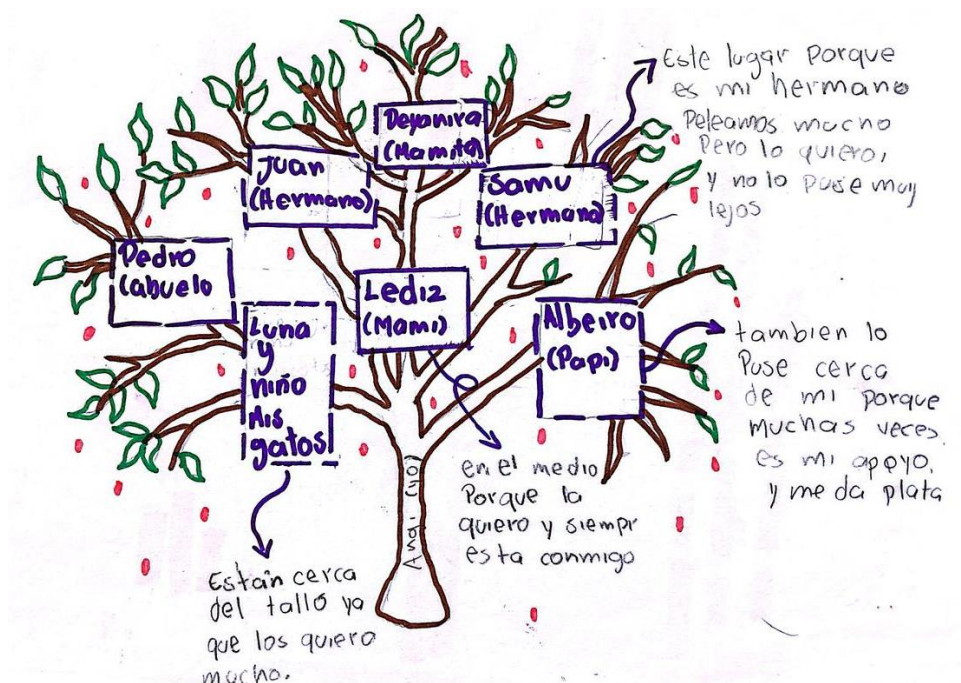 Deyanira
(Mamita)
Juan
(Hermano)
Samu
(Hermano)
Este lugar Porque
es mi hermano
Peleamos mucho
Pero lo quiero,
y no lo puse muy
lejos
Pedro
(abuelo
Luna
y
niño
Mis
gatos
Lediz
(Mami)
Albeiro
(Papi)
tambien lo
Puse cerca
de mi porque
muchas veces
es mi apoyo,
y me da plata
en el medio
Porque la
quiero y siempr
esta conmigo
(yo)
Están cerca
del tallo ya
que los quiero
mucho.